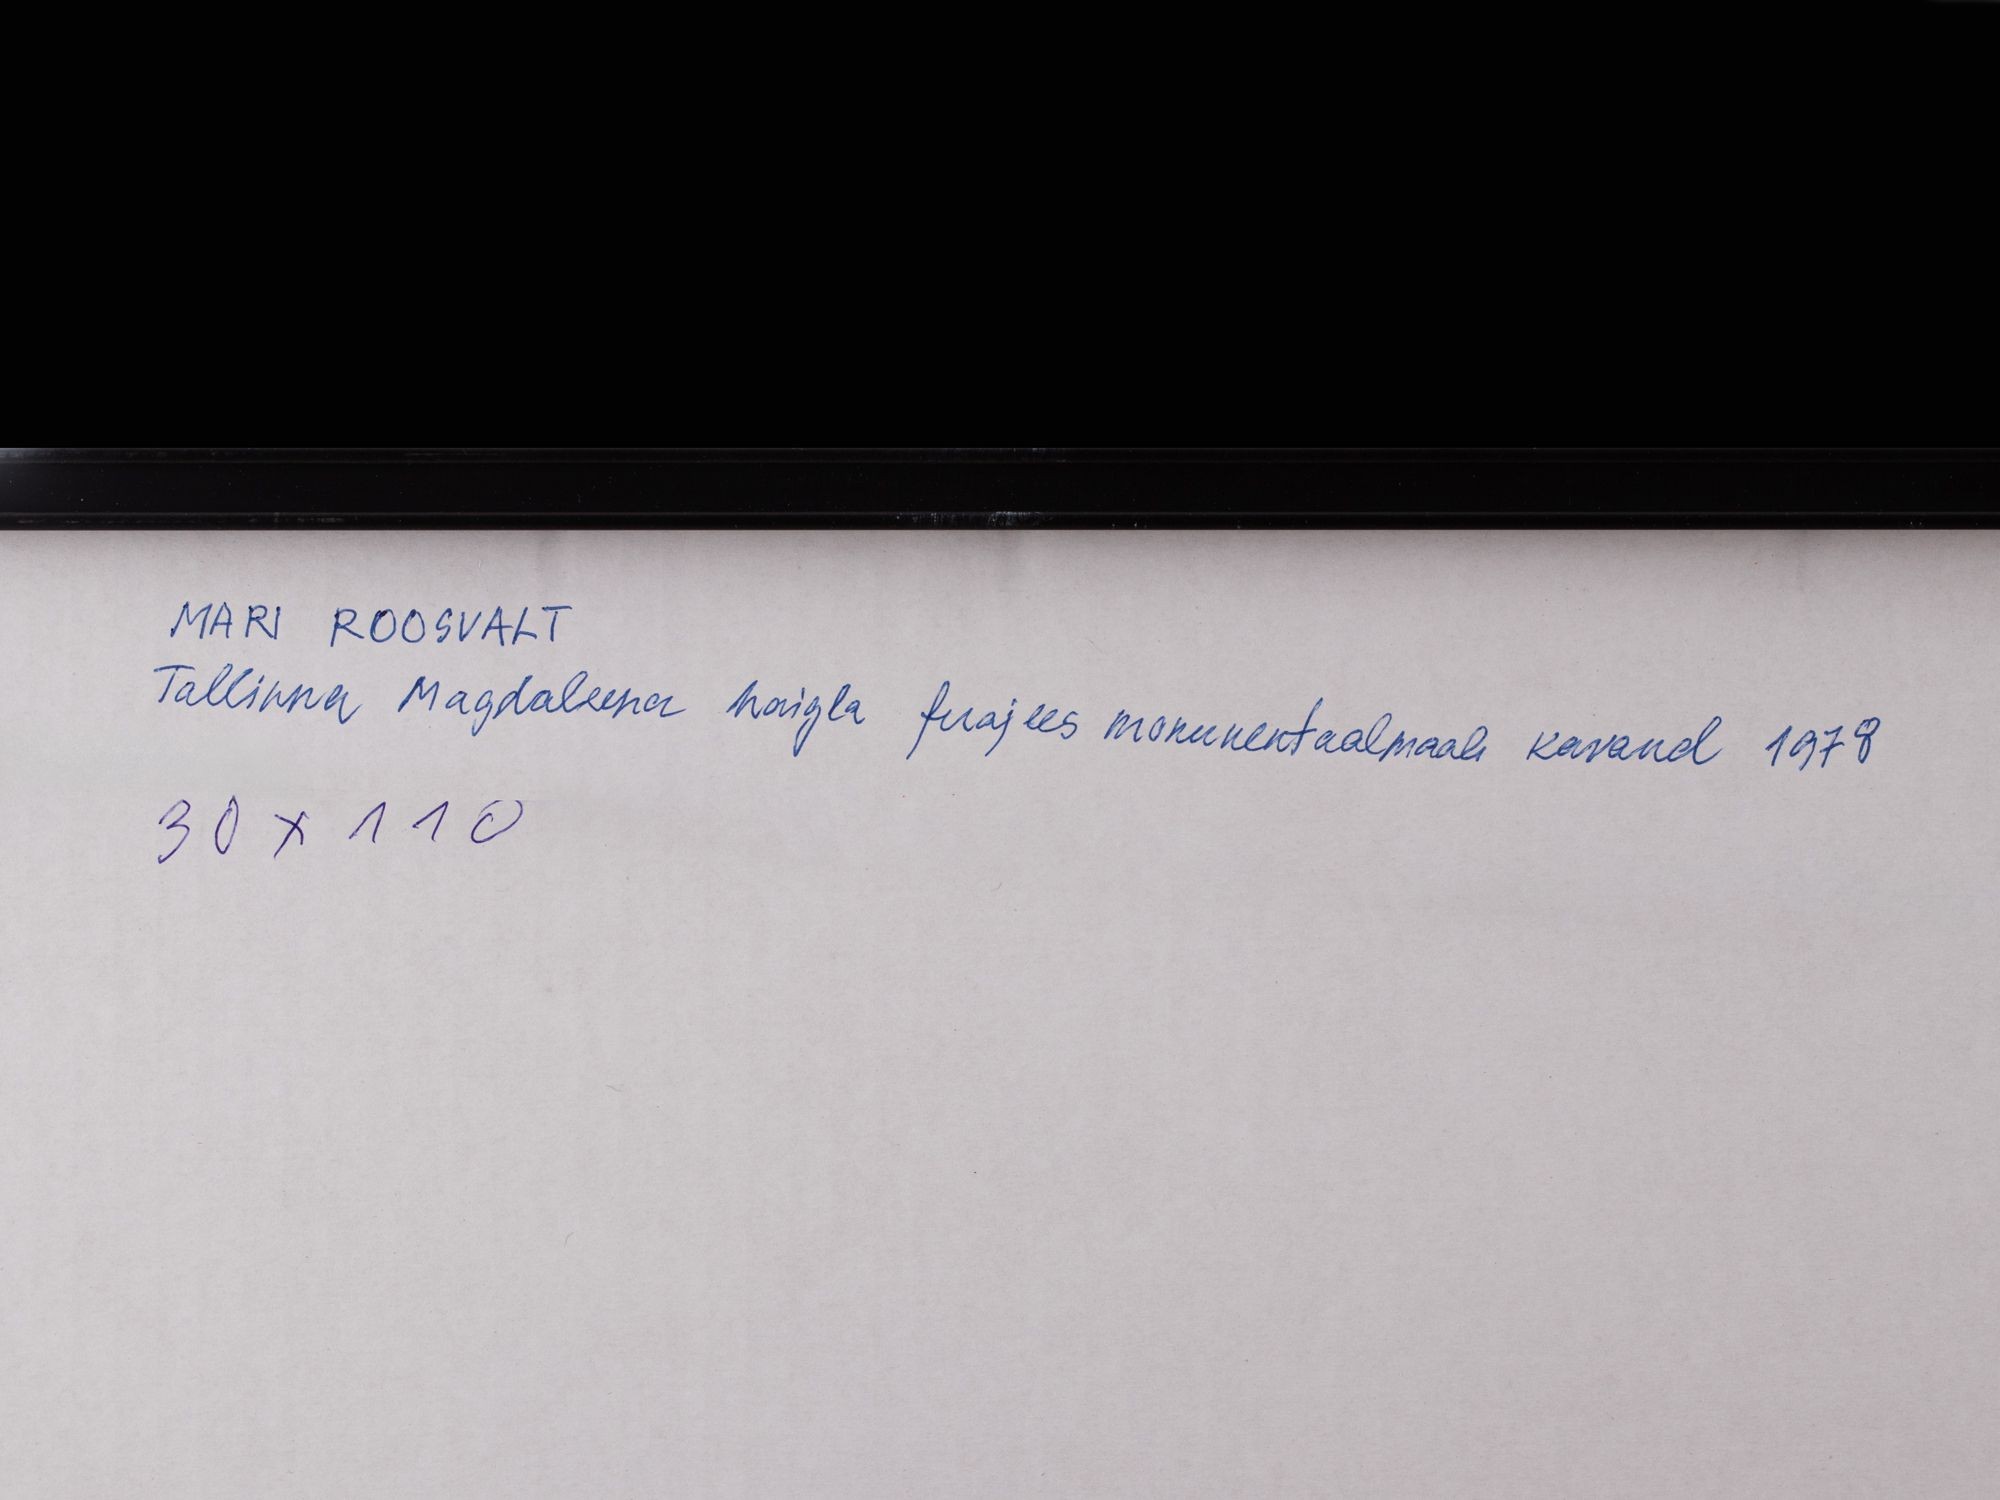 MARI ROOSVALT
Tallinna Magdaleena haigla fuajees monumentaalmaali kavand 1978
30 x 110